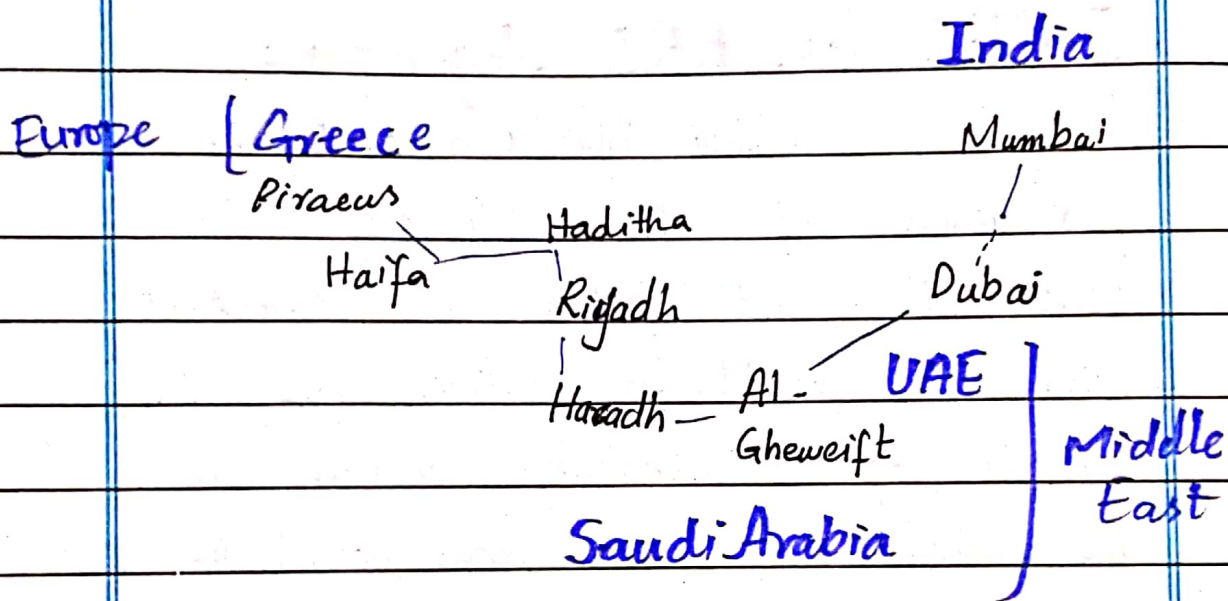 India
Europe [ Greece
Mumbai
Piraeus
Haditha
Haifa
Dubai
Riyadh
UAE ]
Haradh — Al-
Gheweift
Middle
East
Saudi Arabia